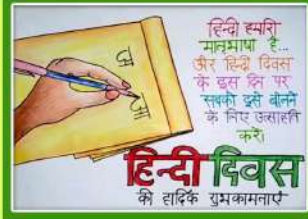 हिन्दी हमारी
मातृभाषा है...
और हिन्दी दिवस
के इस दिन पर
सबको इसे बोलने
के लिए उत्साहित
करें।
हिन्दी दिवस
की हार्दिक शुभकामनाएँ